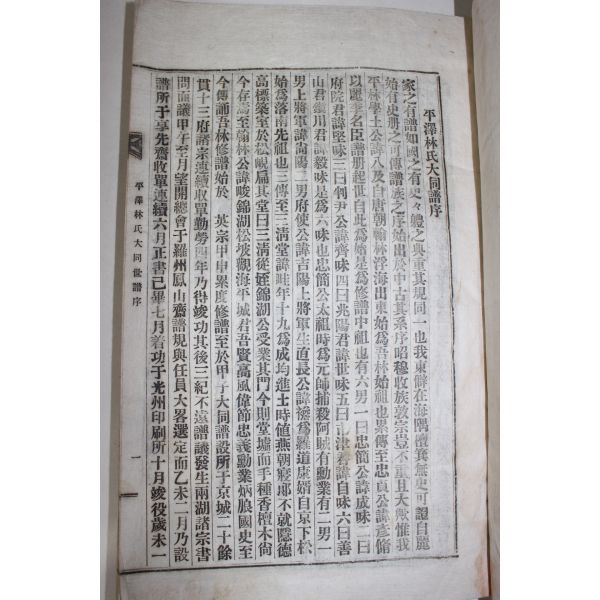 平澤林氏大同譜序
家之有譜如國之有史々體之典重其規同一也我東僻在海隅檀箕無史可證自麗
始有史册之可傳譜族之序始出於中古其系序昭穆收族敦宗豈不重且大歟惟我
平林學士公諱八及自唐朝翰林浮海出東始爲吾林始祖也累傳至忠貞公諱彦脩
以麗季名臣譜册起世自此爲始是爲修譜中祖也有六男一曰忠簡公諱成味二曰
府院君諱堅味三曰判尹公諱齊味四曰兆陽君諱世味五曰山津君諱自味六曰善
山君鐵川君諱毅味是爲六味也忠簡公太祖時爲元師捕殺阿賊有勳業有二男一
男上將軍諱尙陽二男府使公諱吉陽上將軍生直長公諱爲羅道康婿自京下松
始爲落南先祖也三傳至三淸堂諱畦年十九爲成均進士時値燕朝寢郞不就隱德
高標築室於松峴扁其堂曰三淸從姪錦湖公受業其門今則堂墟而手種香檀木尙
今存焉至節林公諱畯錦湖松坡觀海平城君吾賢高風偉節忠義勳業炳朖國史至
今傳誦吾林修譜始於 英宗甲申累度修譜至於甲子大同譜設所于京城二十餘
貫十三府諸宗連續收單勤勞四年乃得竣功其後三紀不遠譜議發生兩湖諸宗書
問面議甲午至月望開總會于羅州鳳山齋譜規與任員大畧選定而乙未二月乃設
譜所于享先齋收單連續六月正書已畢七月着功于光州印刷所十月竣役歲未一
平澤林氏大同世譜序
一